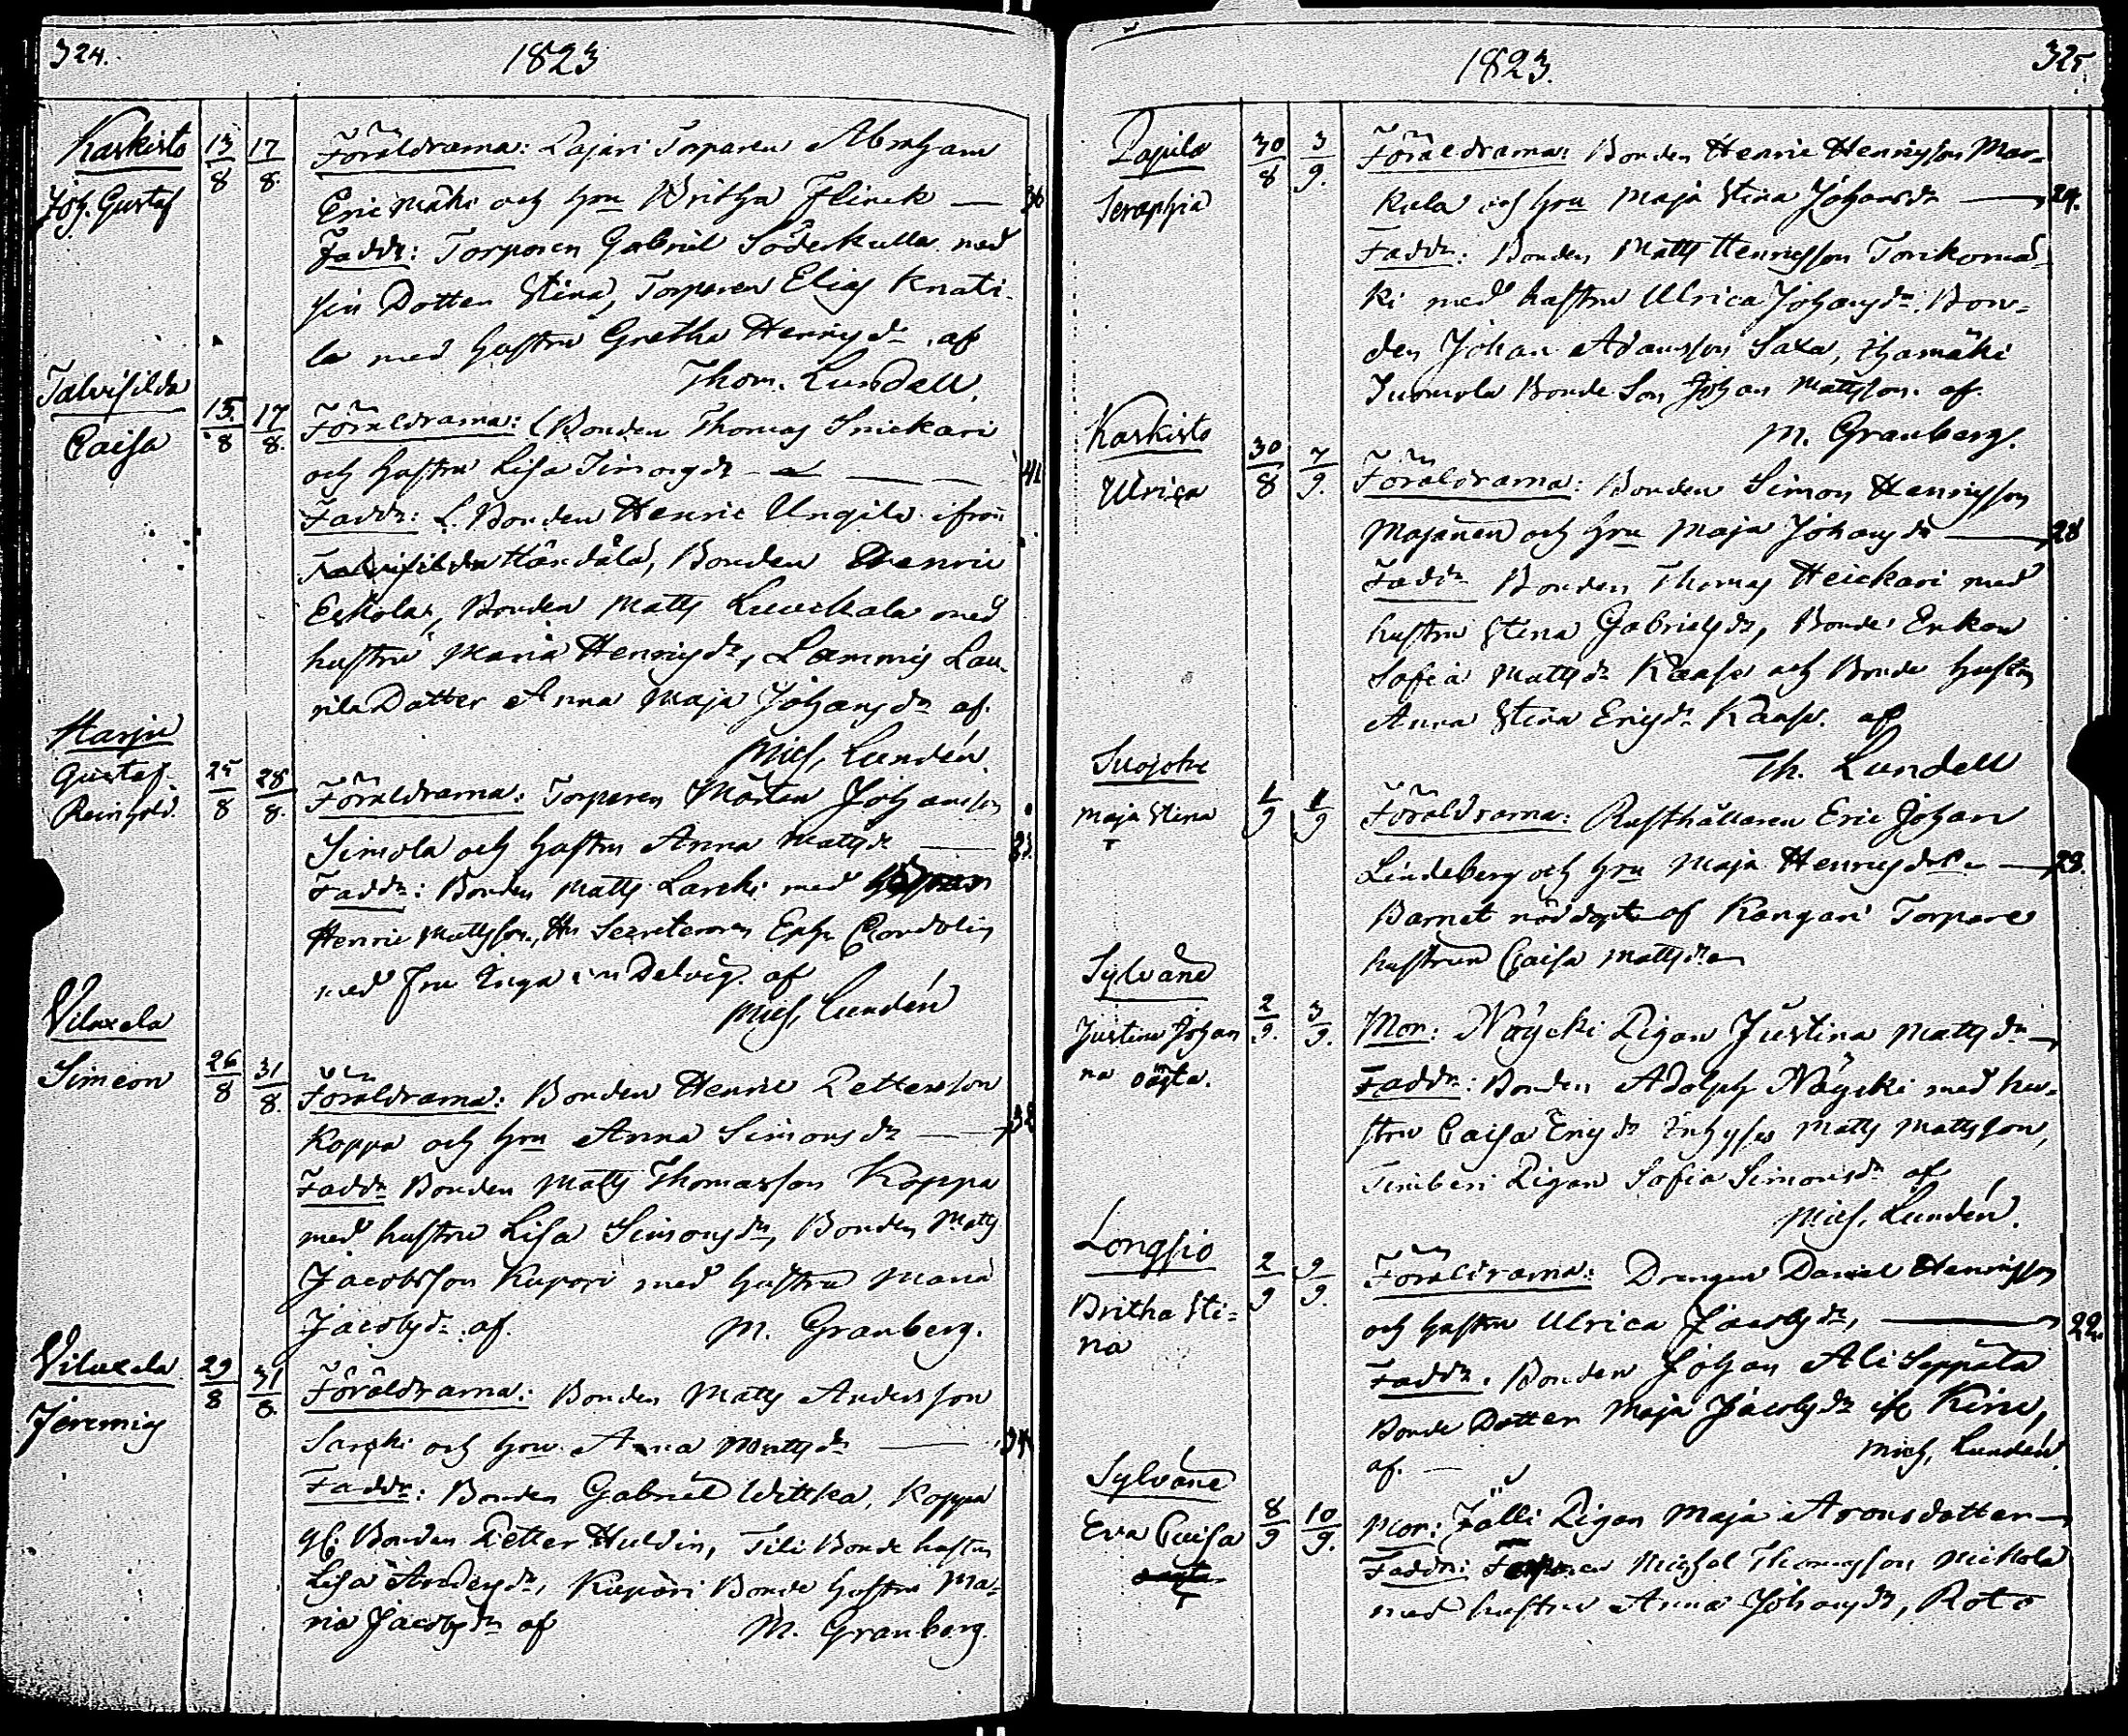 324.
1823
Karkisto
Joh. Gustaf
13/8 17/8.
Föräldrarna: Pajari Torparen Abraham
Ericmäki och hru Britha Flinck — 36
Faddr: Torparen Gabriel Söderkulla med
sin Dotter Stina, Torparen Elias Knati-
la med hustru Gretha Henrigsdr af
Thom. Lundell.
Talvisilda
Caisa
15/8 17/8.
Föräldrarna: Bonden Thomas Snickari
och hustru Lisa Simonsdr — 41
Faddr: L. Bonden Henric Ungila ifrån
Händälä, Bonden Henric
Eskola, Bonden Matts Luuckala med
hustru Maria Henrigsdr, Lammis Lau-
rila Dotter Anna Maja Johansdr af
Mich. Lundén.
Harju
Gustaf
Reinhold.
25/8 28/8.
Föräldrarna: Torparen Mårten Johansson
Simola och hustru Anna Mattsdr — 23.
Faddr: Bonden Matts Larcki med
Henric Mattsson, Hr Secreteraren Ephr
med Fru Inga von Delvig. af
Mich. Lundén
Viluxela
Simeon
26/8 31/8.
Föräldrarna: Bonden Henric Pettersson
Koppa och hru Anna Simonsdr — 38
Faddr Bonden Matts Thomasson Koppa
med hustru Lisa Simonsdr, Bonden Matts
Jacobsson Kupari med hustru Maria
Jacobsdr. af. M. Granberg.
Viluxela
Jeremias
29/8 31/8.
Föräldrarna: Bonden Matts Andersson
Sarcki och hru Anna Mattsdr — 34
Faddr: Bonden Gabriel Wittka, Koppa
gl. Bonden Petter Huldin, Tili Bonde hustru
Lisa Andersdr, Kupari Bonde hustru Ma-
ria Jacobsdr af M. Granberg.
325.
1823.
Pajula
Seraphia
30/8 3/9.
Föräldrarna: Bonden Henric Henricsson Mar-
kula och hru Maja Stina Johansdr — 24.
Faddr: Bonden Matts Henricsson Torikomä-
ki med hustru Ulrica Johansdr. Bon-
den Johan Adamsson Saxa, Hjamäki
Juomola Bonde Son Johan Mattsson. af.
M. Granberg.
Karkisto
Ulrica
30/8 7/9.
Föräldrarna: Bonden Simon Henricsson
Majanen och hru Maja Johansdr — 28
Faddr Bonden Thomas Heickari med
hustru Stina Gabrielsdr, Bonde Enkan
Sofia Mattsdr Kaase och Bonde hustru
Anna Stina Ericsdr Kaase. af
Th. Lundell
Suojoki
Maja Stina
†
1/9 1/9
Föräldrarna: Rusthållaren Eric Johan
Lindeberg och hru Maja Henrigsdr. — 23.
Barnet nöddöpt af Kangari Torpare
hustrun Caisa Mattsdr
Sylväne
Justina Johan
na oägta.
2/9. 3/9.
Mor: Näycki Pigan Justina Mattsdr —
Faddr: Bonden Adolph Näycki med hu-
stru Caisa Ericsdr Inhyses Matts Mattsson,
Timberi Pigan Sofia Simonsdr af
Mich. Lundén.
Longsio
Britha Sti-
na
2/9 9/9.
Föräldrarna: Drengen Daniel Henricsson
och hustru Ulrica Jacobsdr, — 22.
Faddr. Bonden Johan Ali Seppälä
Bonde Dotter Maja Jacobsdr ifr Kirri,
af. — Mich. Lundén.
Sylväne
Eva Caisa
†
8/9 10/9.
Mor: Jälli Pigan Maja Aronsdotter —
Faddr: Torparen Michel Thomasson Mickola
med hustru Anna Johansdr, Roto